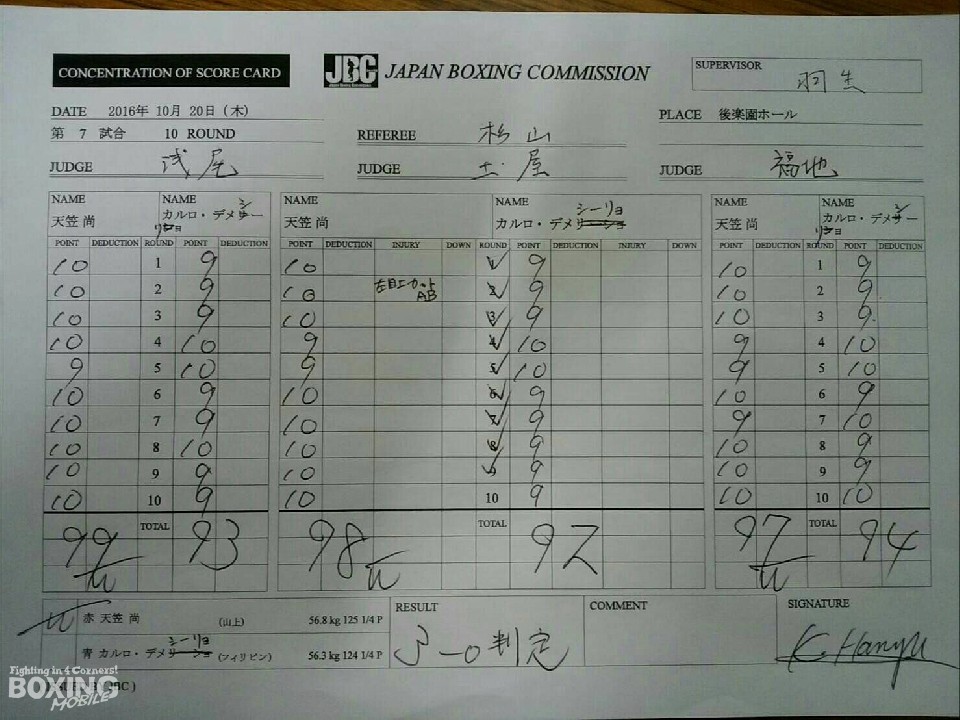 CONCENTRATION OF SCORE CARD
JBC JAPAN BOXING COMMISSION
SUPERVISOR 羽生
DATE 2016年 10月 20日 (木)
PLACE 後楽園ホール
第 7 試合 10 ROUND
REFEREE 杉山
JUDGE 浅尾
JUDGE 土屋
JUDGE 福地
NAME 天笠 尚 NAME カルロ・デメシーリョ
NAME 天笠 尚 NAME カルロ・デメシーリョ
NAME 天笠 尚 NAME カルロ・デメシーリョ
POINT DEDUCTION ROUND POINT DEDUCTION
POINT DEDUCTION INJURY DOWN ROUND POINT DEDUCTION INJURY DOWN
POINT DEDUCTION ROUND POINT DEDUCTION
10 1 9 10 1 9 10 1 9
10 2 9 10 左目上カット AB 2 9 10 2 9
10 3 9 10 3 9 10 3 9
10 4 10 9 4 10 9 4 10
9 5 10 9 5 10 9 5 10
10 6 9 10 6 9 10 6 9
10 7 9 10 7 9 9 7 10
10 8 10 10 8 9 10 8 9
10 9 9 10 9 9 10 9 9
10 10 9 10 10 9 10 10 10
99 TOTAL 93 98 TOTAL 92 97 TOTAL 94
赤 天笠 尚 (山上) 56.8 kg 125 1/4 P
青 カルロ・デメシーリョ (フィリピン) 56.3 kg 124 1/4 P
RESULT 3-0判定
COMMENT
SIGNATURE K. Hanyu
Fighting in 4 Corners!
BOXING
MOBILE
JBC )